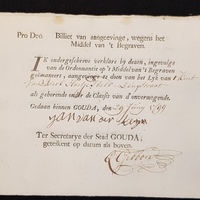 Pro Deo. Billiet van aangeevinge, wegens het
Middel van 't Begraven.
IK ondergeschreven verklare by deezen, ingevolge
van de Ordonnantie op 't Middel van 't Begraven
geëmaneert, aangeeving te doen van het Lyk van 't Kint
van
als gehorende onder de Classis van d'onvermogende.
Gedaan binnen GOUDA, den 29 Juny 1799
Jan van der
Ter Secretarye der Stad GOUDA,
geteekent op datum als boven.